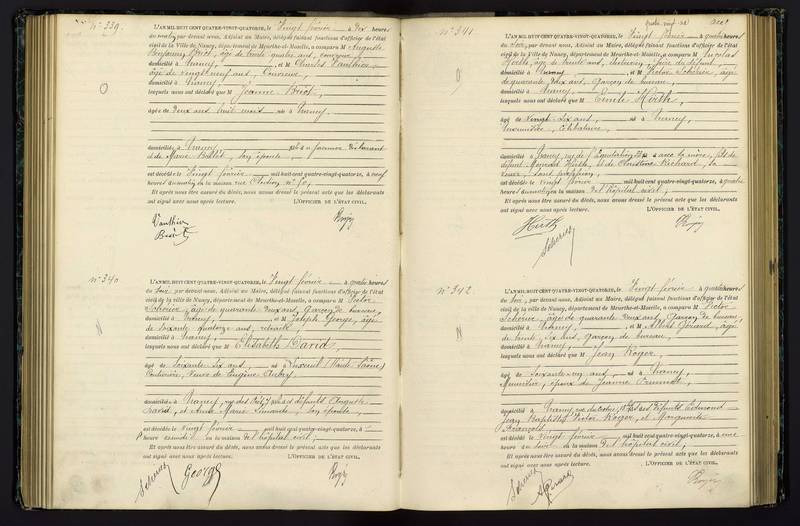 N° 339.
L'AN MIL HUIT CENT QUATRE-VINGT-QUATORZE, le Vingt février à dix heures
du matin, par devant nous, Adjoint au Maire, délégué faisant fonctions d'officier de l'état
civil de la Ville de Nancy, département de Meurthe-et-Moselle, a comparu M Auguste
Benjamin Briot, âgé de trente quatre ans,
domicilié à Nancy, et M Charles Vauthier,
âgé de vingt neuf ans, Couvreur,
domicilié à Nancy,
lesquels nous ont déclaré que M Jeanne Briot,
âgée de deux ans huit mois né à Nancy,
domiciliée à Nancy, déclarant
et de Marie son épouse,
est décédé le Vingt février mil huit cent quatre-vingt-quatorze, à neuf
heures du matin en la maison rue n° 10,
Et après nous être assuré du décès, nous avons dressé le présent acte que les déclarants
ont signé avec nous après lecture. L'OFFICIER DE L'ÉTAT CIVIL.
Vauthier
Briot
N° 340
L'AN MIL HUIT CENT QUATRE-VINGT-QUATORZE, le Vingt février à quatre heures
du soir, par devant nous, Adjoint au Maire, délégué faisant fonctions d'officier de l'état
civil de la Ville de Nancy, département de Meurthe-et-Moselle, a comparu M Victor
âgé de quarante deux ans, Garçon de bureau,
domicilié à Nancy, et M Joseph George, âgé
de soixante quatorze ans, retraité
domicilié à Nancy,
lesquels nous ont déclaré que M Elisabeth David,
âgé de soixante six ans, né à Luxeuil (Haute-Saône)
veuve de Eugène Aubry,
domicilié à Nancy, défunts Auguste
David, et Anne Marie son épouse,
est décédé le Vingt février mil huit cent quatre-vingt-quatorze, à
heures en la maison de l'hôpital civil;
Et après nous être assuré du décès, nous avons dressé le présent acte que les déclarants
ont signé avec nous après lecture. L'OFFICIER DE L'ÉTAT CIVIL.
George
N° 341
L'AN MIL HUIT CENT QUATRE-VINGT-QUATORZE, le Vingt février à quatre heures
du soir, par devant nous, Adjoint au Maire, délégué faisant fonctions d'officier de l'état
civil de la Ville de Nancy, département de Meurthe-et-Moselle, a comparu M Nicolas
Hirth, âgé de trente ans, frère du défunt,
domicilié à Nancy, et M Victor âgé
de quarante deux ans, garçon de bureau,
domicilié à Nancy,
lesquels nous ont déclaré que M Emile Hirth,
âgé de Vingt six ans, né à Nancy,
célibataire,
domicilié à Nancy, rue de avec sa mère, fils de
défunt Hirth, et de Christine Richard, sa
veuve, sans profession,
est décédé le Vingt février mil huit cent quatre-vingt-quatorze, à quatre
heures du matin en la maison de l'hôpital civil;
Et après nous être assuré du décès, nous avons dressé le présent acte que les déclarants
ont signé avec nous après lecture. L'OFFICIER DE L'ÉTAT CIVIL.
Hirth
N° 342
L'AN MIL HUIT CENT QUATRE-VINGT-QUATORZE, le Vingt février à quatre heures
du soir, par devant nous, Adjoint au Maire, délégué faisant fonctions d'officier de l'état
civil de la Ville de Nancy, département de Meurthe-et-Moselle, a comparu M Victor
âgé de quarante deux ans, Garçon de bureau,
domicilié à Nancy, et M Albert Gérard, âgé
de trente six ans, garçon de bureau,
domicilié à Nancy,
lesquels nous ont déclaré que M Jean Roger,
âgé de soixante un ans, né à Nancy,
Menuisier, époux de Jeanne
domicilié à Nancy, fils des défunts Edmond
Jean Baptiste Victor Roger, et Marguerite
François,
est décédé le Vingt février mil huit cent quatre-vingt-quatorze, à une
heure du soir en la maison de l'hôpital civil;
Et après nous être assuré du décès, nous avons dressé le présent acte que les déclarants
ont signé avec nous après lecture. L'OFFICIER DE L'ÉTAT CIVIL.